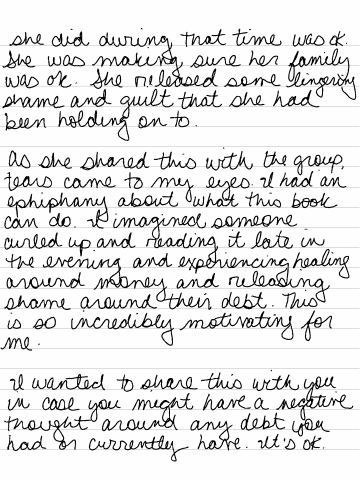 she did during that time was ok.
She was making sure her family
was ok. She released some lingering
shame and guilt that she had
been holding on to.
As she shared this with the group,
tears came to my eyes. I had an
ephiphany about what this book
can do. I imagined someone
curled up and reading it late in
the evening and experiencing healing
around money and releasing
shame around their debt. This
is so incredibly motivating for
me.
I wanted to share this with you
in case you might have a negative
thought around any debt you
had or currently have. It's ok.